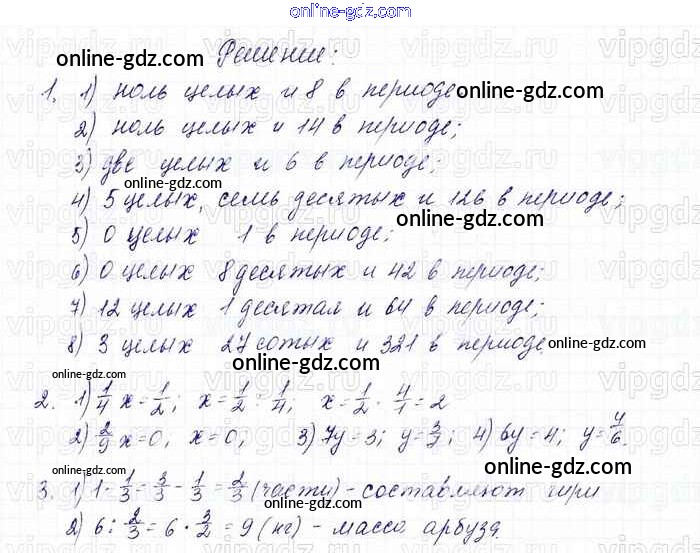 online-gdz.com
Решение:
1. 1) ноль целых и 8 в периоде online-gdz.com
2) ноль целых и 14 в периоде;
3) две целых и 6 в периоде;
online-gdz.com
4) 5 целых, семь десятых и 126 в периоде;
5) 0 целых 1 в периоде; online-gdz.com
6) 0 целых 8 десятых и 42 в периоде;
7) 12 целых 1 десятая и 64 в периоде;
8) 3 целых 27 сотых и 321 в периоде. online-gdz.com
online-gdz.com
2. 1) 1/4 x = 1/2; x = 1/2 : 1/4; x = 1/2 · 4/1 = 2
2) 2/9 x = 0; x = 0; 3) 7y = 3; y = 3/7; 4) 6y = 4; y = 4/6.
online-gdz.com online-gdz.com
3. 1) 1 - 1/3 = 3/3 - 1/3 = 2/3 (части) - составляют гири
2) 6 : 2/3 = 6 · 3/2 = 9 (кг) - масса арбуза.
online-gdz.com